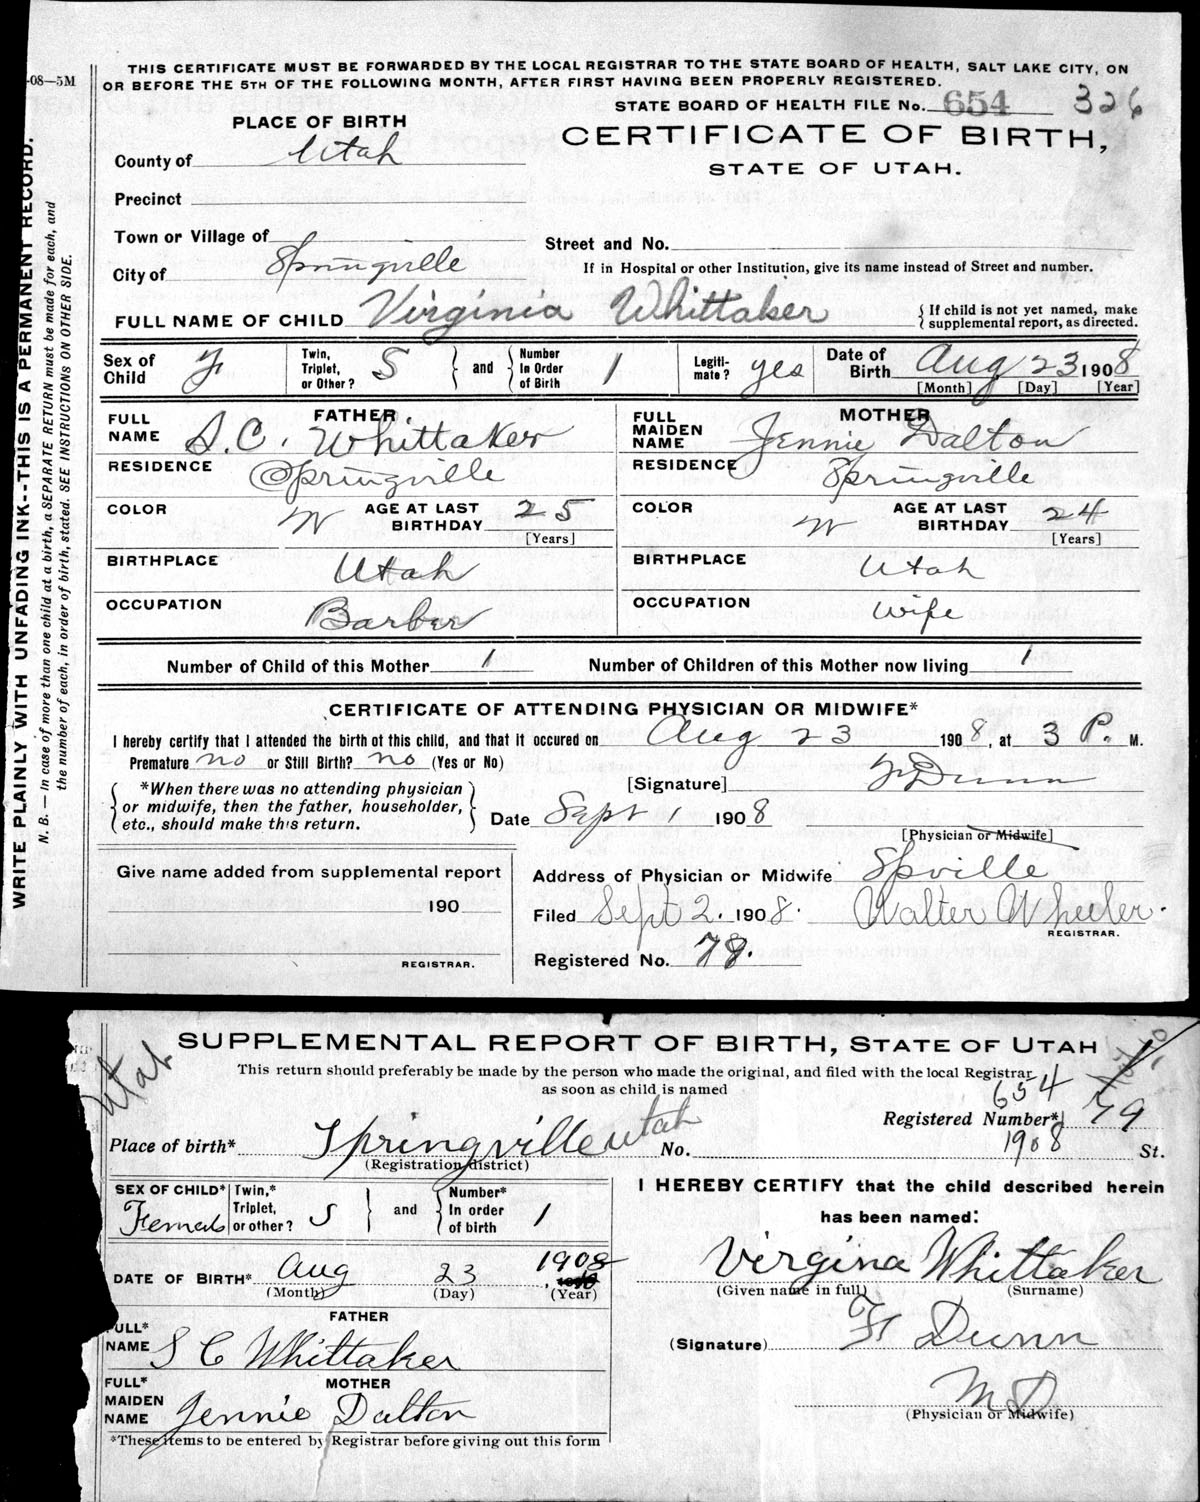 -08—5M
WRITE PLAINLY WITH UNFADING INK--THIS IS A PERMANENT RECORD.
N. B. — In case of more than one child at a birth, a SEPARATE RETURN must be made for each, and
the number of each, in order of birth, stated. SEE INSTRUCTIONS ON OTHER SIDE.
THIS CERTIFICATE MUST BE FORWARDED BY THE LOCAL REGISTRAR TO THE STATE BOARD OF HEALTH, SALT LAKE CITY, ON
OR BEFORE THE 5TH OF THE FOLLOWING MONTH, AFTER FIRST HAVING BEEN PROPERLY REGISTERED.
STATE BOARD OF HEALTH FILE No. 654 326
PLACE OF BIRTH
CERTIFICATE OF BIRTH,
STATE OF UTAH.
County of Utah
Precinct
Town or Village of
Street and No.
City of Springville
If in Hospital or other Institution, give its name instead of Street and number.
FULL NAME OF CHILD Virginia Whittaker
If child is not yet named, make
supplemental report, as directed.
Sex of Child F
Twin, Triplet, or Other? S and Number In Order of Birth 1
Legiti-mate? yes
Date of Birth Aug 23 1908
[Month] [Day] [Year]
FATHER
FULL NAME S. C. Whittaker
MOTHER
FULL MAIDEN NAME Jennie Dalton
RESIDENCE Springville
RESIDENCE Springville
COLOR W AGE AT LAST BIRTHDAY 25 [Years]
COLOR W AGE AT LAST BIRTHDAY 24 [Years]
BIRTHPLACE Utah
BIRTHPLACE Utah
OCCUPATION Barber
OCCUPATION Wife
Number of Child of this Mother 1 Number of Children of this Mother now living 1
CERTIFICATE OF ATTENDING PHYSICIAN OR MIDWIFE*
I hereby certify that I attended the birth of this child, and that it occured on Aug 23 1908, at 3 P. M.
Premature no or Still Birth? no (Yes or No)
*When there was no attending physician
or midwife, then the father, householder,
etc., should make this return.
[Signature] Dunn
Date Sept 1 1908
[Physician or Midwife]
Give name added from supplemental report
190
REGISTRAR.
Address of Physician or Midwife Spville
Filed Sept 2. 1908. Walter Wheeler.
REGISTRAR.
Registered No. 79.
Utah
SUPPLEMENTAL REPORT OF BIRTH, STATE OF UTAH
This return should preferably be made by the person who made the original, and filed with the local Registrar
as soon as child is named
654
Registered Number* 79
1908
Place of birth* Springville Utah No. St.
(Registration district)
SEX OF CHILD* Female
Twin,* Triplet, or other? S and Number* In order of birth 1
DATE OF BIRTH* Aug 23 1908
(Month) (Day) (Year)
FATHER
FULL* NAME S C Whittaker
MOTHER
FULL* MAIDEN NAME Jennie Dalton
*These items to be entered by Registrar before giving out this form
I HEREBY CERTIFY that the child described herein
has been named:
Virgina Whittaker
(Given name in full) (Surname)
(Signature) F Dunn
M D
(Physician or Midwife)